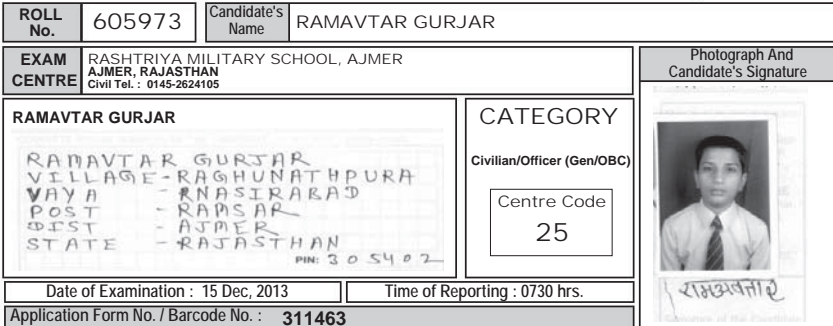 ROLL No. 605973 Candidate's Name RAMAVTAR GURJAR
EXAM CENTRE RASHTRIYA MILITARY SCHOOL, AJMER
AJMER, RAJASTHAN
Civil Tel. : 0145-2624105
Photograph And
Candidate's Signature
RAMAVTAR GURJAR
RAMAVTAR GURJAR
VILLAGE-RAGHUNATHPURA
VAYA - RNASIRABAD
POST - RAMSAR
DIST - AJMER
STATE - RAJASTHAN
PIN: 305402
CATEGORY
Civilian/Officer (Gen/OBC)
Centre Code
25
रामअवतार
Date of Examination : 15 Dec, 2013 Time of Reporting : 0730 hrs.
Application Form No. / Barcode No. : 311463